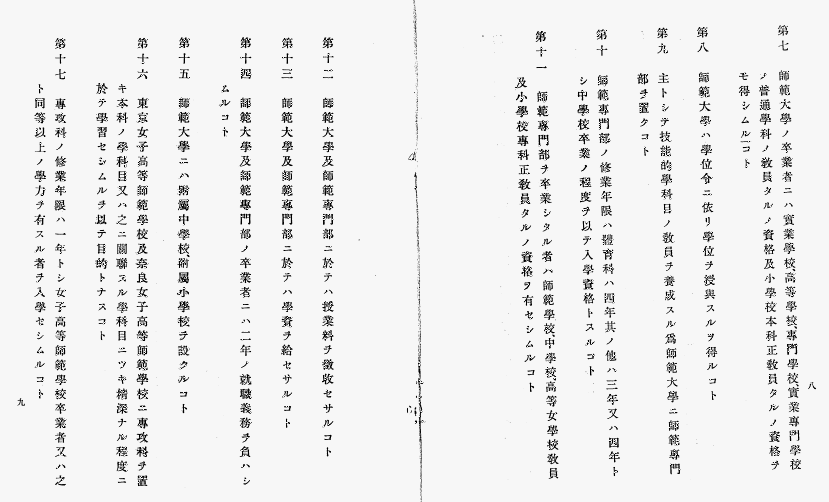 第七　師範大學ノ卒業者ニハ實業學校、高等學校、專門學校、實業專門學校
ノ普通學科ノ敎員タルノ資格及小學校本科正敎員タルノ資格ヲ
モ得シムルコト
第八　師範大學ハ學位令ニ依リ學位ヲ授與スルヲ得ルコト
第九　主トシテ技能的學科目ノ敎員ヲ養成スル爲師範大學ニ師範專門
部ヲ置クコト
第十　師範專門部ノ修業年限ハ體育科ハ四年其ノ他ハ三年又ハ四年ト
シ中學校卒業ノ程度ヲ以テ入學資格トスルコト
第十一　師範專門部ヲ卒業シタル者ハ師範學校、中學校、高等女學校敎員
及小學校專科正敎員タルノ資格ヲ有セシムルコト
八
第十二　師範大學及師範專門部ニ於テハ授業料ヲ徵收セサルコト
第十三　師範大學及師範專門部ニ於テハ學資ヲ給セサルコト
第十四　師範大學及師範專門部ノ卒業者ニハ二年ノ就職義務ヲ負ハシ
ムルコト
第十五　師範大學ニハ附屬中學校、附屬小學校ヲ設クルコト
第十六　東京女子高等師範學校及奈良女子高等師範學校ニ專攻科ヲ置
キ本科ノ學科目又ハ之ニ關聯スル學科目ニツキ精深ナル程度ニ
於テ學習セシムルヲ以テ目的トナスコト
第十七　專攻科ノ修業年限ハ一年トシ女子高等師範學校卒業者又ハ之
ト同等以上ノ學力ヲ有スル者ヲ入學セシムルコト
九